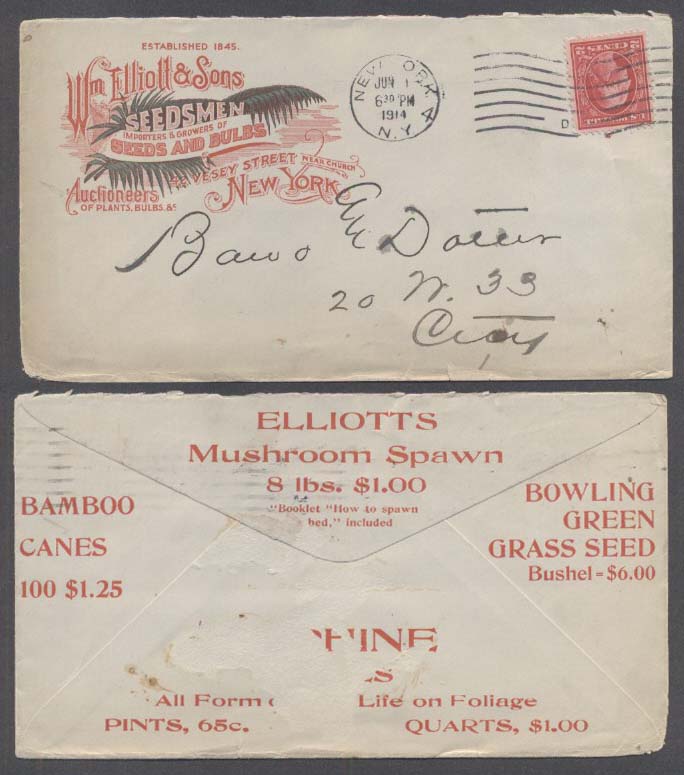 ESTABLISHED 1845.
Wm Elliott & Sons
SEEDSMEN
IMPORTERS & GROWERS OF
SEEDS AND BULBS
VESEY STREET NEAR CHURCH
NEW YORK
Auctioneers
OF PLANTS, BULBS, &c
NEW YORK
JUN 1
6 30 PM
1914
N.Y.
D
2 CENTS 2
Bawo & Dotter
20 W. 33
City
ELLIOTTS
Mushroom Spawn
8 lbs. $1.00
"Booklet "How to spawn
bed," included
BAMBOO
CANES
100 $1.25
BOWLING
GREEN
GRASS SEED
Bushel = $6.00
HINE
S
All Form Life on Foliage
PINTS, 65c. QUARTS, $1.00